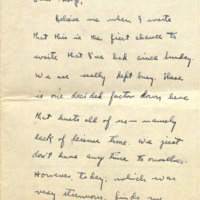 Believe me when I write
that this is the first chance to
write that I've had since Sunday.
We are really kept busy. There
is one decided factor down here
that hurts all of us — namely
lack of leisure time. We just
don't have any time to ourselves.
However, today, which was
very strenuous, finds me